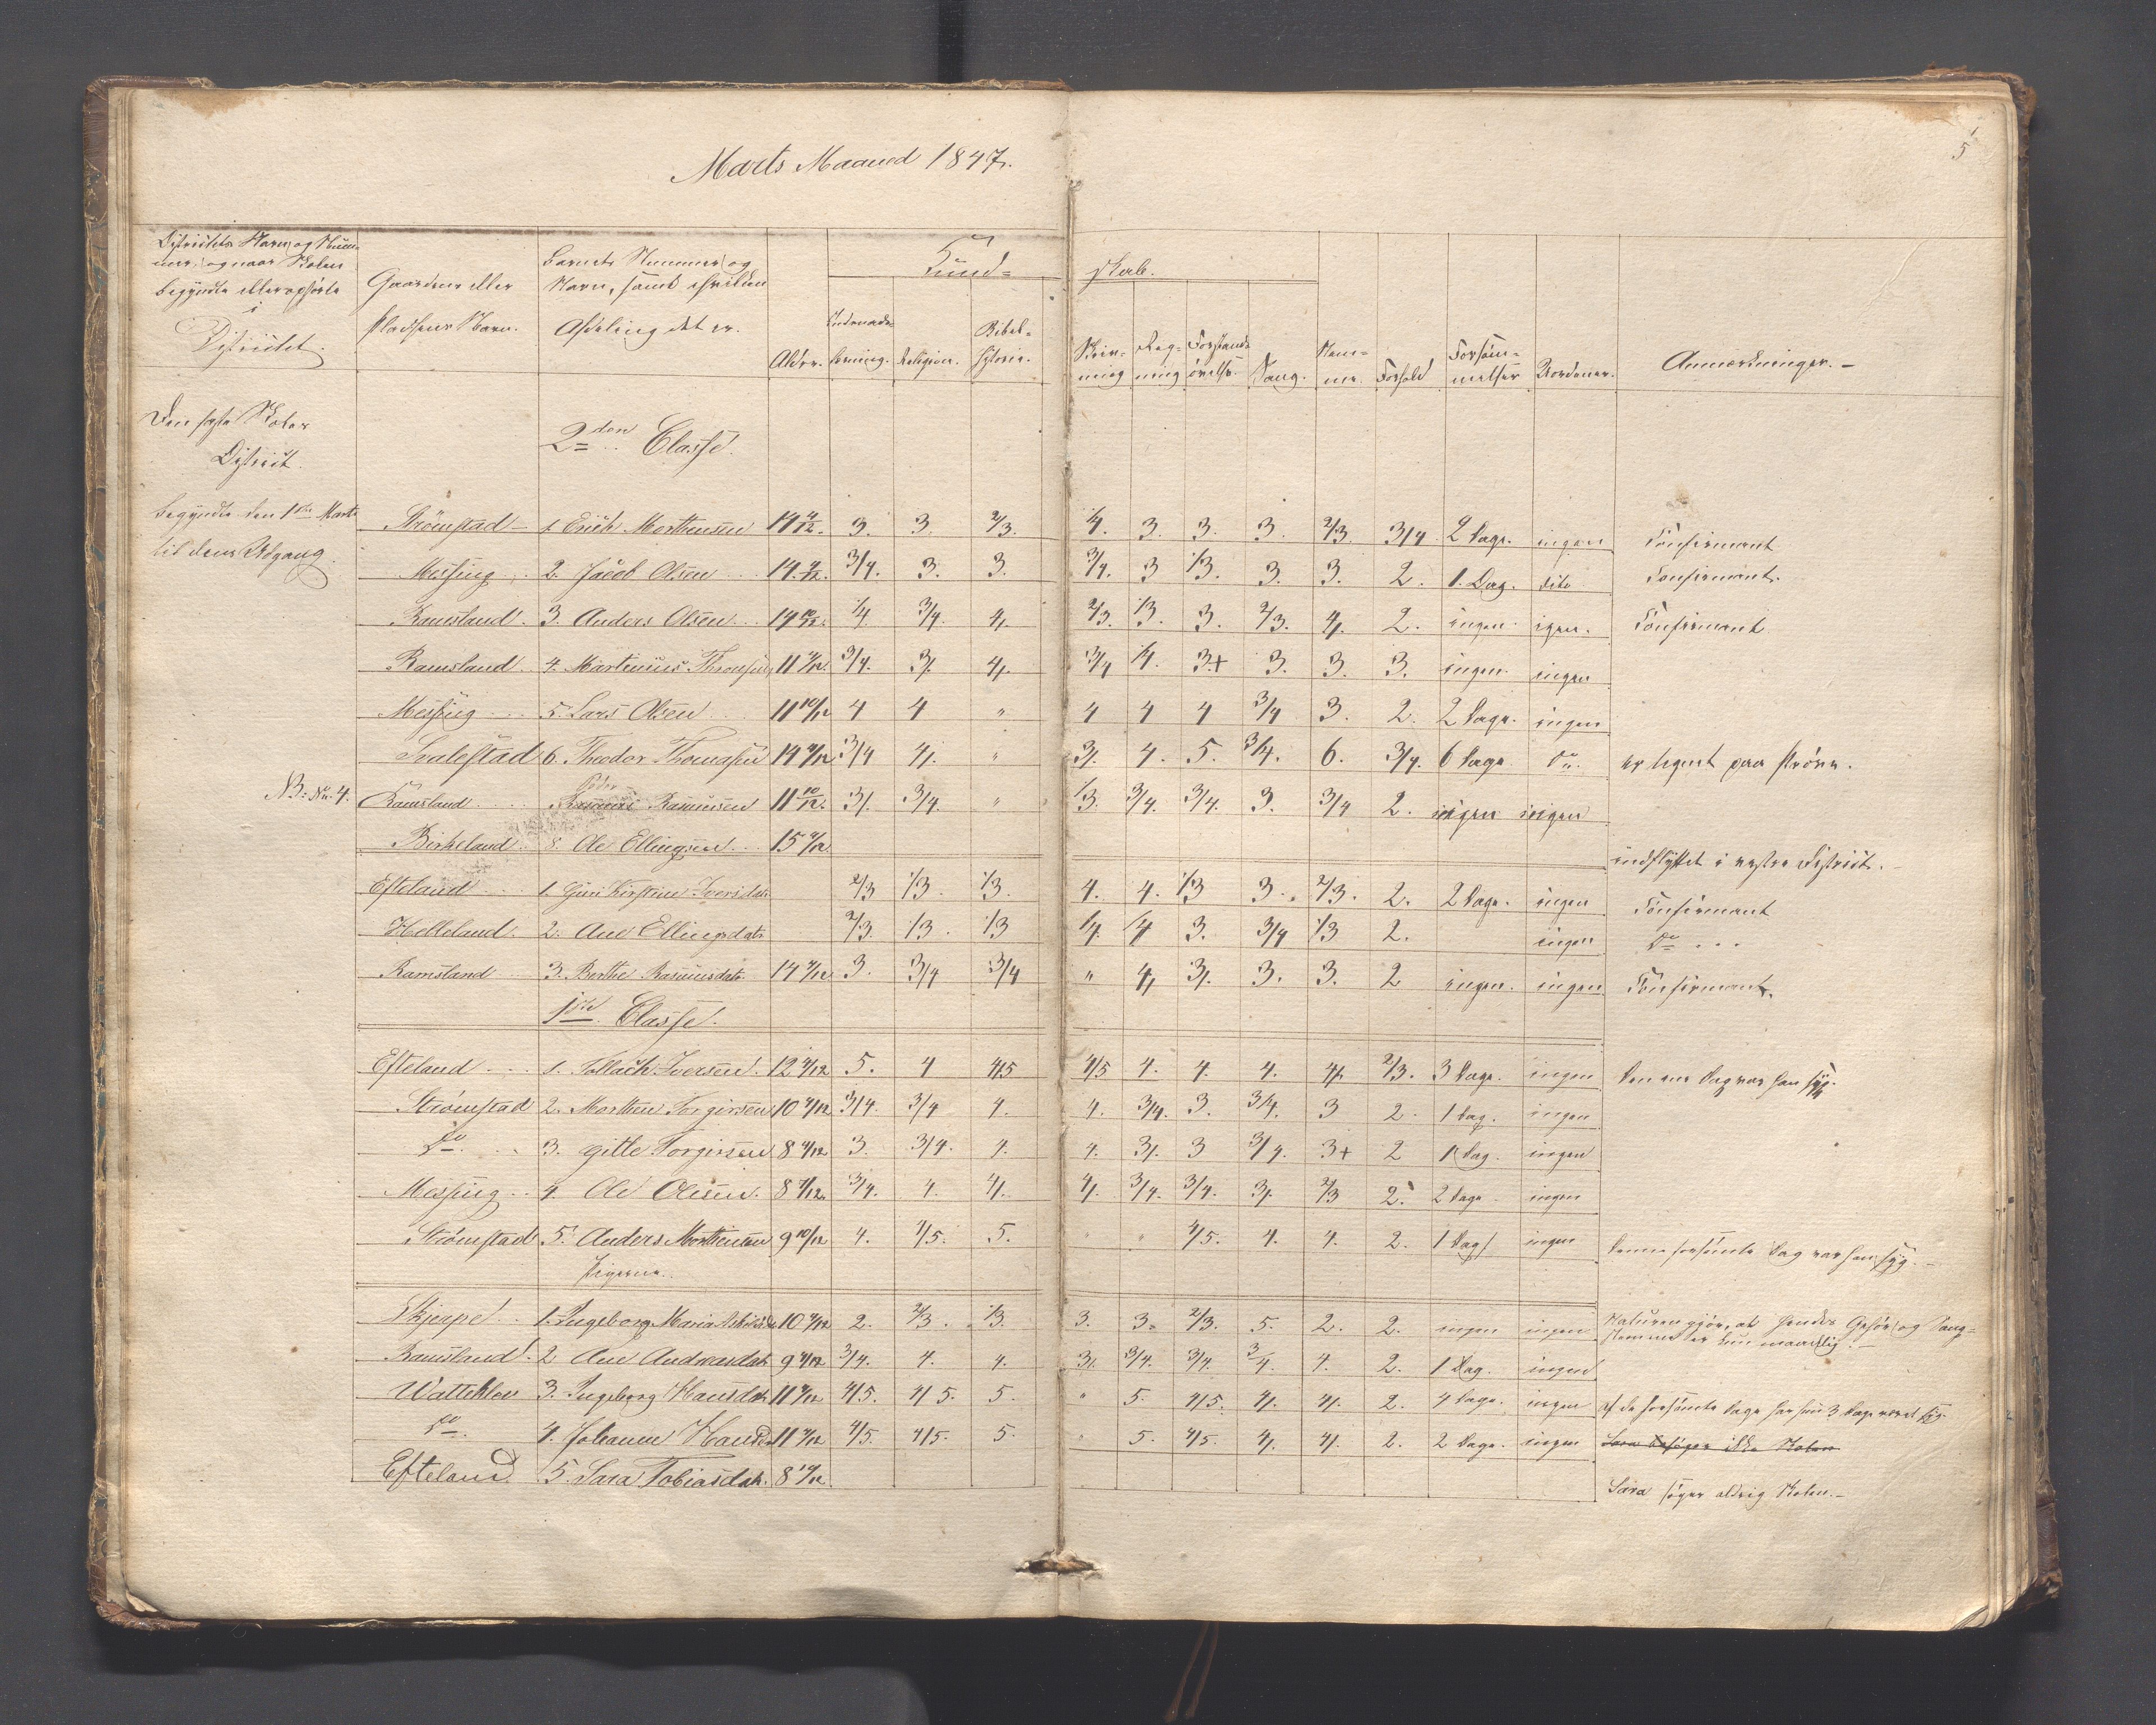 Marts Maaned 1847.
5
Districtets Navn og Num-
mer, og naar Skolen
begyndte eller ophørte
i
Districtet.
Gaardens eller
Pladsens Navn.
Barnets Nummer og
Navn, samt hvilken
Afdeling det er.
Alder.
Kund-
skab.
Indenads-
læsning.
Religion.
Bibel-
historie.
Skriv-
ning
Reg-
ning
Forstands
øvelse.
Sang.
Nem-
me.
Forhold
Forsøm-
melser
Uordener.
Anmærkninger.-
Den sjette Skoles
District.
2den Classe.
begyndte den 1ste Marts
til dens Udgang
Strømstad 1. Erich Morthensen 14 4/12. 3. 3. 2/3. 1/4. 3. 3. 3. 2/3. 3/4. 2 Dage. ingen Confirmant
Messing 2. Jacob Olsen 14. 3/4. 3. 3. 3/4. 3 1/3. 3. 3. 2. 1. Dag. dito Confirmant.
Ramsland. 3. Anders Olsen 14 1/4 3/4. 4. 2/3. 1/3. 3. 2/3. 4. 2. ingen. igen. Confirmant
Ramsland 4. Martinius 11 3/4. 3/. 4/. 3/4 1/4. 3+ 3. 3. 3. ingen. ingen
Messing 5. Lars Olsen 11 10/12 4 4 " 4 4 4 3/4 3. 2. 2 Dage. ingen
Svalestad 6. Theodor Thomasen 14 3/4 4/. " 3/. 4. 5. 3/4. 6. 3/4. 6 Dage Do. er legent paa Prøve.
NB: No. 4. Ramsland Peder Rasmusen 11 10/12. 3/. 3/4. " 1/3. 3/4. 3/4. 3. 3/4 2. ingen ingen
Birkeland 8. Ole Ellingsen 15 indflyttet i vestre District.
Efteland 1. Guri Kirstine Iversdatr 2/3 1/3 1/3. 4. 4. 1/3 3. 2/3. 2. 2 Dage. ingen Confirmant
Helleland. 2. Ane Ellingsdatr 2/3. 1/3. 1/3 1/4. 1/4 3. 3/4 1/3 2. ingen Do
Ramsland 3. Berthe Rasmusdatr 14 3. 3/4 3/4 " 4/ 3/. 3. 3. 2 ingen. ingen Confirmant.
1ste Classe.
Efteland 1. Tollach Iversen. 12 4/12 5. 4 4/5 4/5 4. 4. 4. 4. 2/3. 3 Dage. ingen den ene Dag var han syg.
Strømstad 2. Morthen Torgirsen 10 4/12 3/4. 3/4 4. 4. 3/4. 3. 3/4. 3 2. 1 Dag. ingen
Do. 3. Gitle Torgirsen 8 4/12 3. 3/4. 4. 4. 3/. 3 3/4. 3+ 2 1 Dag. ingen
Messing 4. Ole Olesen. 8 4/12. 3/4. 4. 4/. 4/. 3/4. 3/4. 3/. 2/3 2. 2 Dage ingen
Strømstad 5. Anders Morthensen 9 10/12 4. 4/5. 5. " " 4/5. 4. 4. 2. 1 Dag ingen Denne forsømte Dag var han syg.-
Pigerne.
Skjerpe 1. Ingeborg Maria 10 4/12 2. 2/3. 1/3. 3. 3. 2/3. 5. 2. 2. ingen ingen Naturen gjør, at hendes Gehør og Sang-
stemme er kun maadelig.-
Ramsland. 2 Ane Andreasdatr 9 4/12 3/4. 4. 4. 3/. 3/4. 3/4. 3/4. 4. 2. 1 Dag. ingen
Watteklev 3. Ingeborg Hansdatr 11 4/5. 4/5. 5. " 5. 4/5. 4/. 4/. 2. 4 Dage. ingen af de forsømte Dage har hun 3 Dage været syg.
Do. 4. Johanne Hansd. 11 4/5. 4/5. 5. " 5. 4/5. 4/. 4/. 2. 2 Dage. ingen Sara besøger ikke Skolen
Efteland. 5. Sara Tobiasdatr. 8 Sara søger aldrig Skolen.-